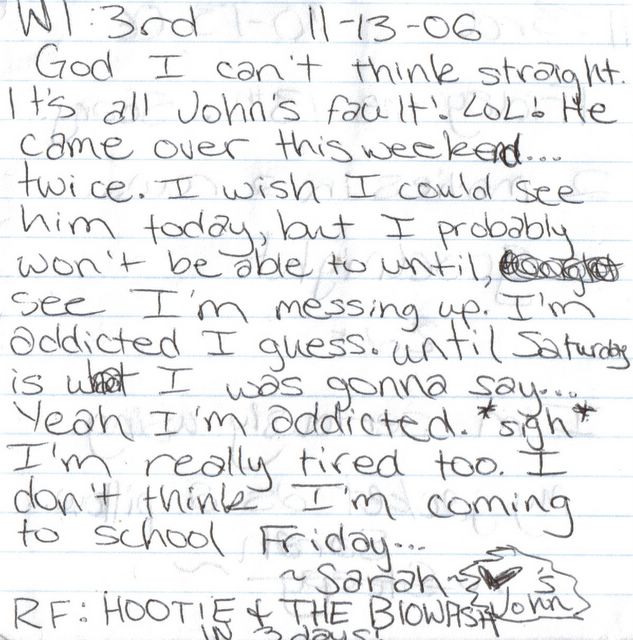 W1:3rd 11-13-06
God I can't think straight.
It's all John's fault! LOL! He
came over this weekend...
twice. I wish I could see
him today, but I probably
won't be able to until,
see I'm messing up. I'm
addicted I guess. until Saturday
is what I was gonna say...
Yeah I'm addicted. *sigh*
I'm really tired too. I
don't think I'm coming
to school Friday...
~Sarah~ ♥'s
John
RF: HOOTIE & THE BlOWFISH
IN 3 days!